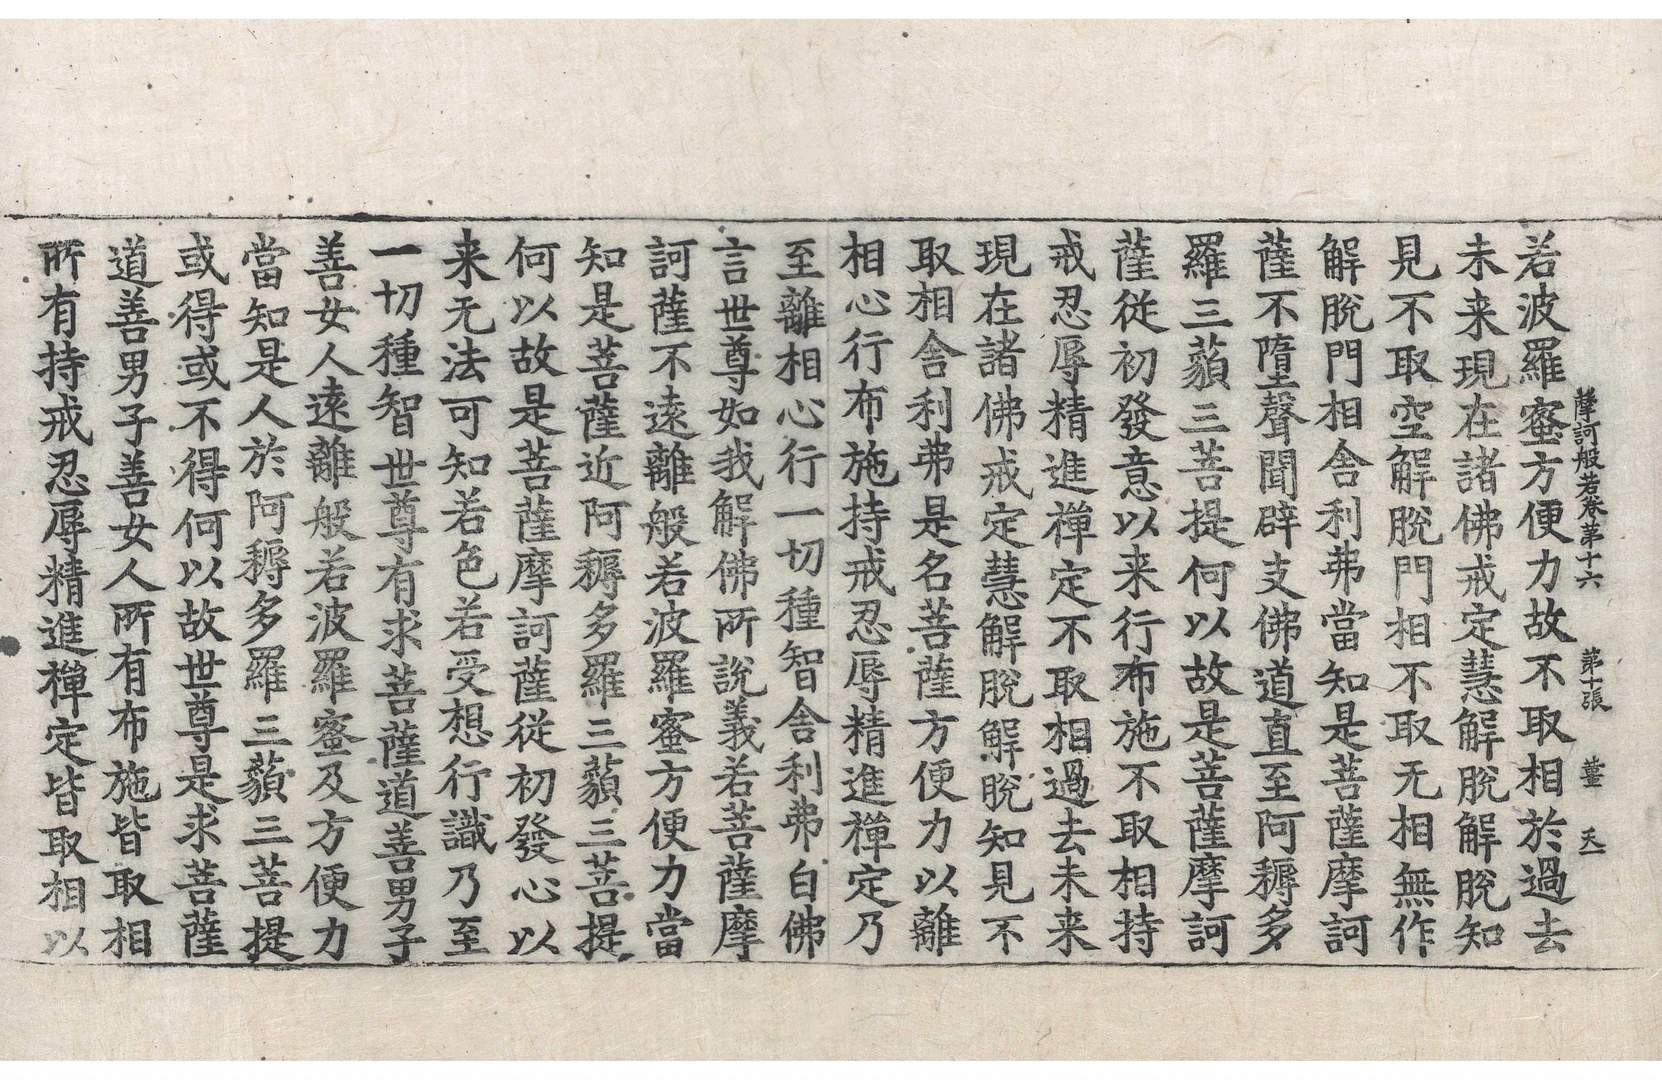 摩訶般若卷第十六　第十張　薑　天一
若波羅蜜方便力故不取相於過去
未来現在諸佛戒定慧解脫解脫知
見不取空解脫門相不取无相無作
解脫門相舍利弗當知是菩薩摩訶
薩不墮聲聞辟支佛道直至阿耨多
羅三藐三菩提何以故是菩薩摩訶
薩從初發意以来行布施不取相持
戒忍辱精進禪定不取相過去未来
現在諸佛戒定慧解脫解脫知見不
取相舍利弗是名菩薩方便力以離
相心行布施持戒忍辱精進禪定乃
至離相心行一切種智舍利弗白佛
言世尊如我解佛所說義若菩薩摩
訶薩不遠離般若波羅蜜方便力當
知是菩薩近阿耨多羅三藐三菩提
何以故是菩薩摩訶薩從初發心以
来无法可知若色若受想行識乃至
一切種智世尊有求菩薩道善男子
善女人遠離般若波羅蜜及方便力
當知是人於阿耨多羅三藐三菩提
或得或不得何以故世尊是求菩薩
道善男子善女人所有布施皆取相
所有持戒忍辱精進禪定皆取相以